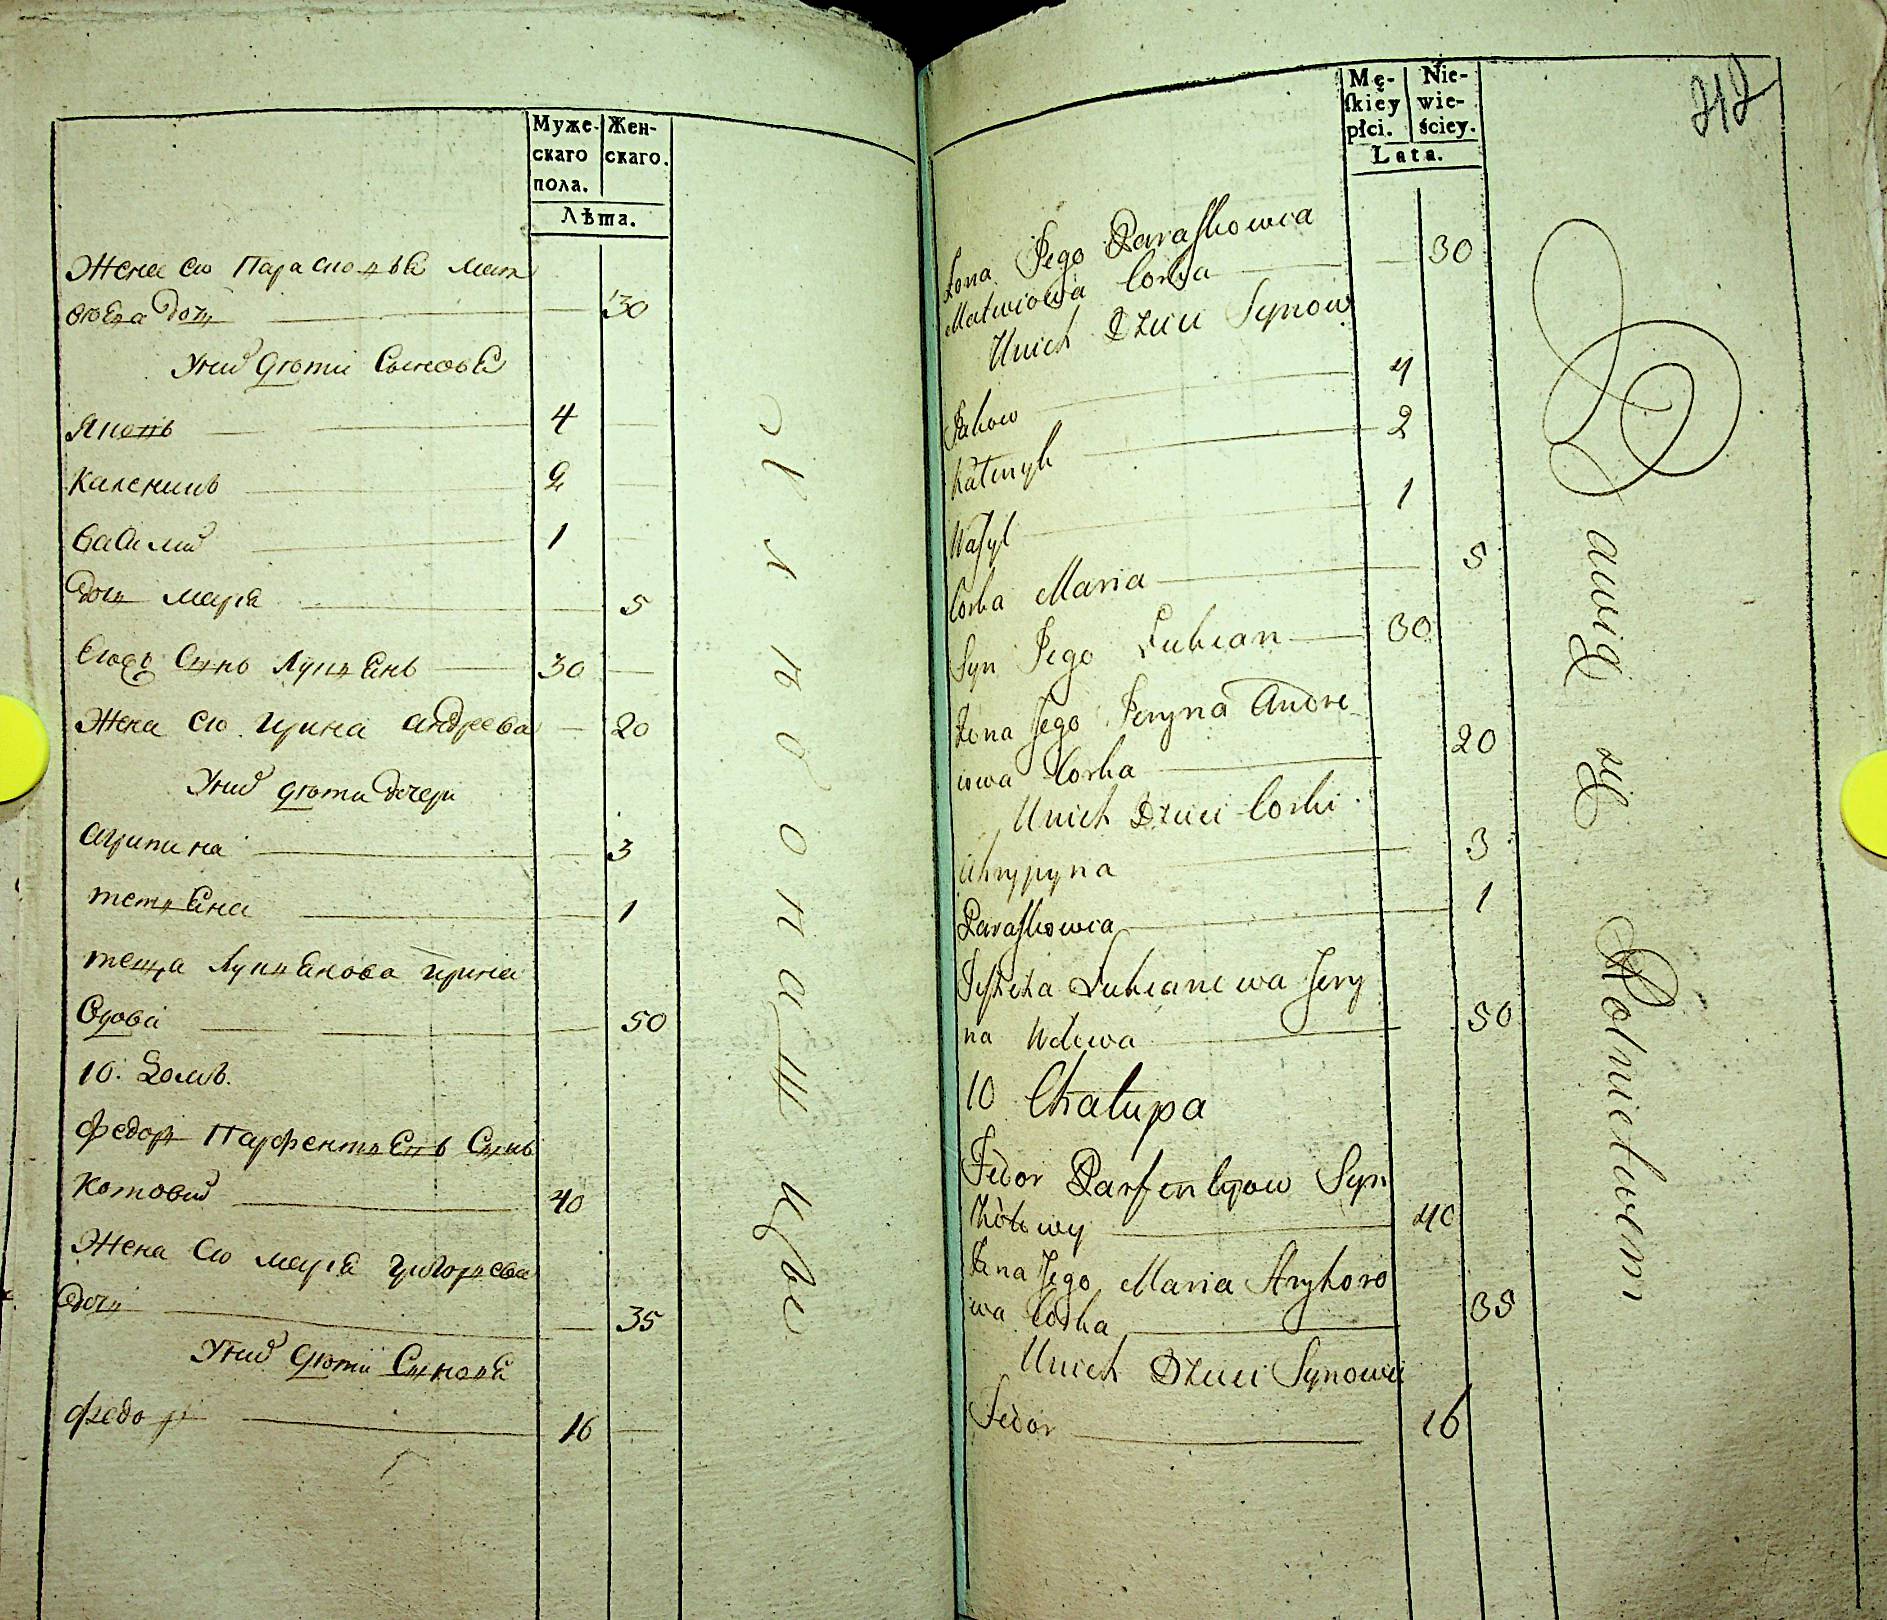 Муже-
скаго
пола.
Жен-
скаго.
Лѣта.
Жена его Парасковья Мат
веева дочь 30
У них дети Сыновья
Яковъ 4
Каленикъ 2
Василий 1
дочь марья 5
Сынъ Лукьянъ 30
Жена его Ирина андреева 20
У них дети дочери
агрипина 3
татьяна 1
теща Лукьянова Ирина
вдова 50
10. Домъ.
федоръ Парфентьевъ Сынъ
Котовий 40
Жена его марья григорьева
дочь 35
У них дети Сыновья
федоръ 16
Mę-
ſkiey
płci.
Nie-
wie-
ściey.
Lata.
212
Żona Jego Paraſkowia 30
Matwiowa Corka
Unich Dzieci Synow
Jakow 4
Katenyk 2
Waſyl 1
Corka Maria 5
Syn Jego Lukian 30
Żona Jego Jeryna Andre
iowa Corka 20
Unich Dzieci Corki
Ahrypyna 3
Paraſkowia 1
Lukianowa Jery
na Wdowa 50
10 Chałupa
Fedor Parfentyow Syn
Kotowy 40
Żona Jego Maria Hryhoro
wa Corka 35
Unich Dzieci Synowie
Fedor 16
Dawid